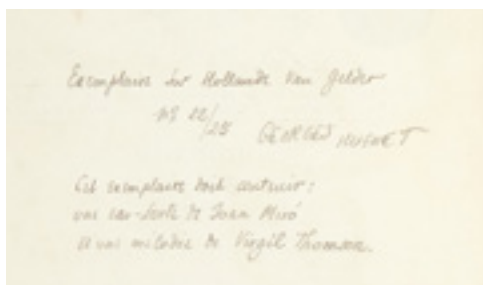 Exemplaire sur Hollande Van Gelder
Nº 22/25 GEORGES HUGNET
Cet exemplaire doit contenir :
une eau-forte de Joan Miró
et une mélodie de Virgil Thomson.